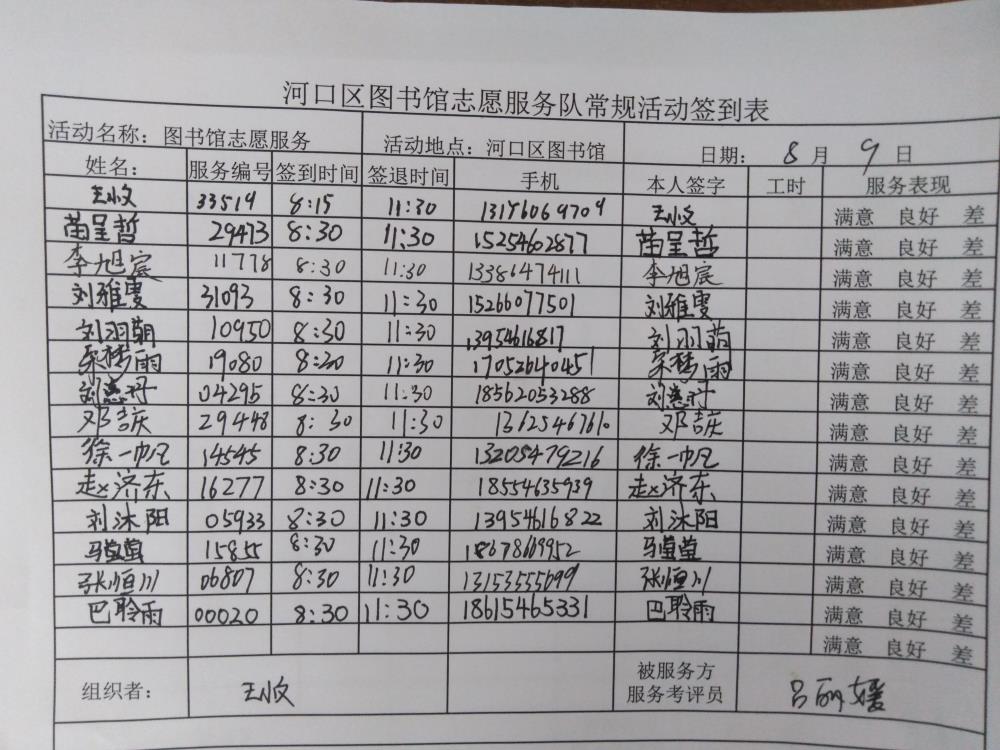 河口区图书馆志愿服务队常规活动签到表
活动名称：图书馆志愿服务 活动地点：河口区图书馆 日期： 8 月 9 日
姓名： 服务编号 签到时间 签退时间 手机 本人签字 工时 服务表现
33519 8:15 11:30 13176069709 满意 良好 差
苗呈哲 29473 8:30 11:30 15254602877 苗呈哲 满意 良好 差
李旭宸 11778 8:30 11:30 13386474111 李旭宸 满意 良好 差
刘雅雯 31093 8:30 11:30 15266077501 刘雅雯 满意 良好 差
刘羽萌 10950 8:30 11:30 13954616817 刘羽萌 满意 良好 差
19080 8:30 11:30 17052640451 满意 良好 差
04295 8:30 11:30 18562053288 满意 良好 差
邓吉庆 29448 8:30 11:30 13625467610 邓吉庆 满意 良好 差
徐一帆 14545 8:30 11:30 13205479216 徐一帆 满意 良好 差
赵济东 16277 8:30 11:30 18554635939 赵济东 满意 良好 差
刘沐阳 05933 8:30 11:30 13954616822 刘沐阳 满意 良好 差
15855 8:30 11:30 满意 良好 差
张恒川 06807 8:30 11:30 13153555699 张恒川 满意 良好 差
巴聆雨 00020 8:30 11:30 18615465331 巴聆雨 满意 良好 差
满意 良好 差
组织者： 被服务方
服务考评员 吕丽媛